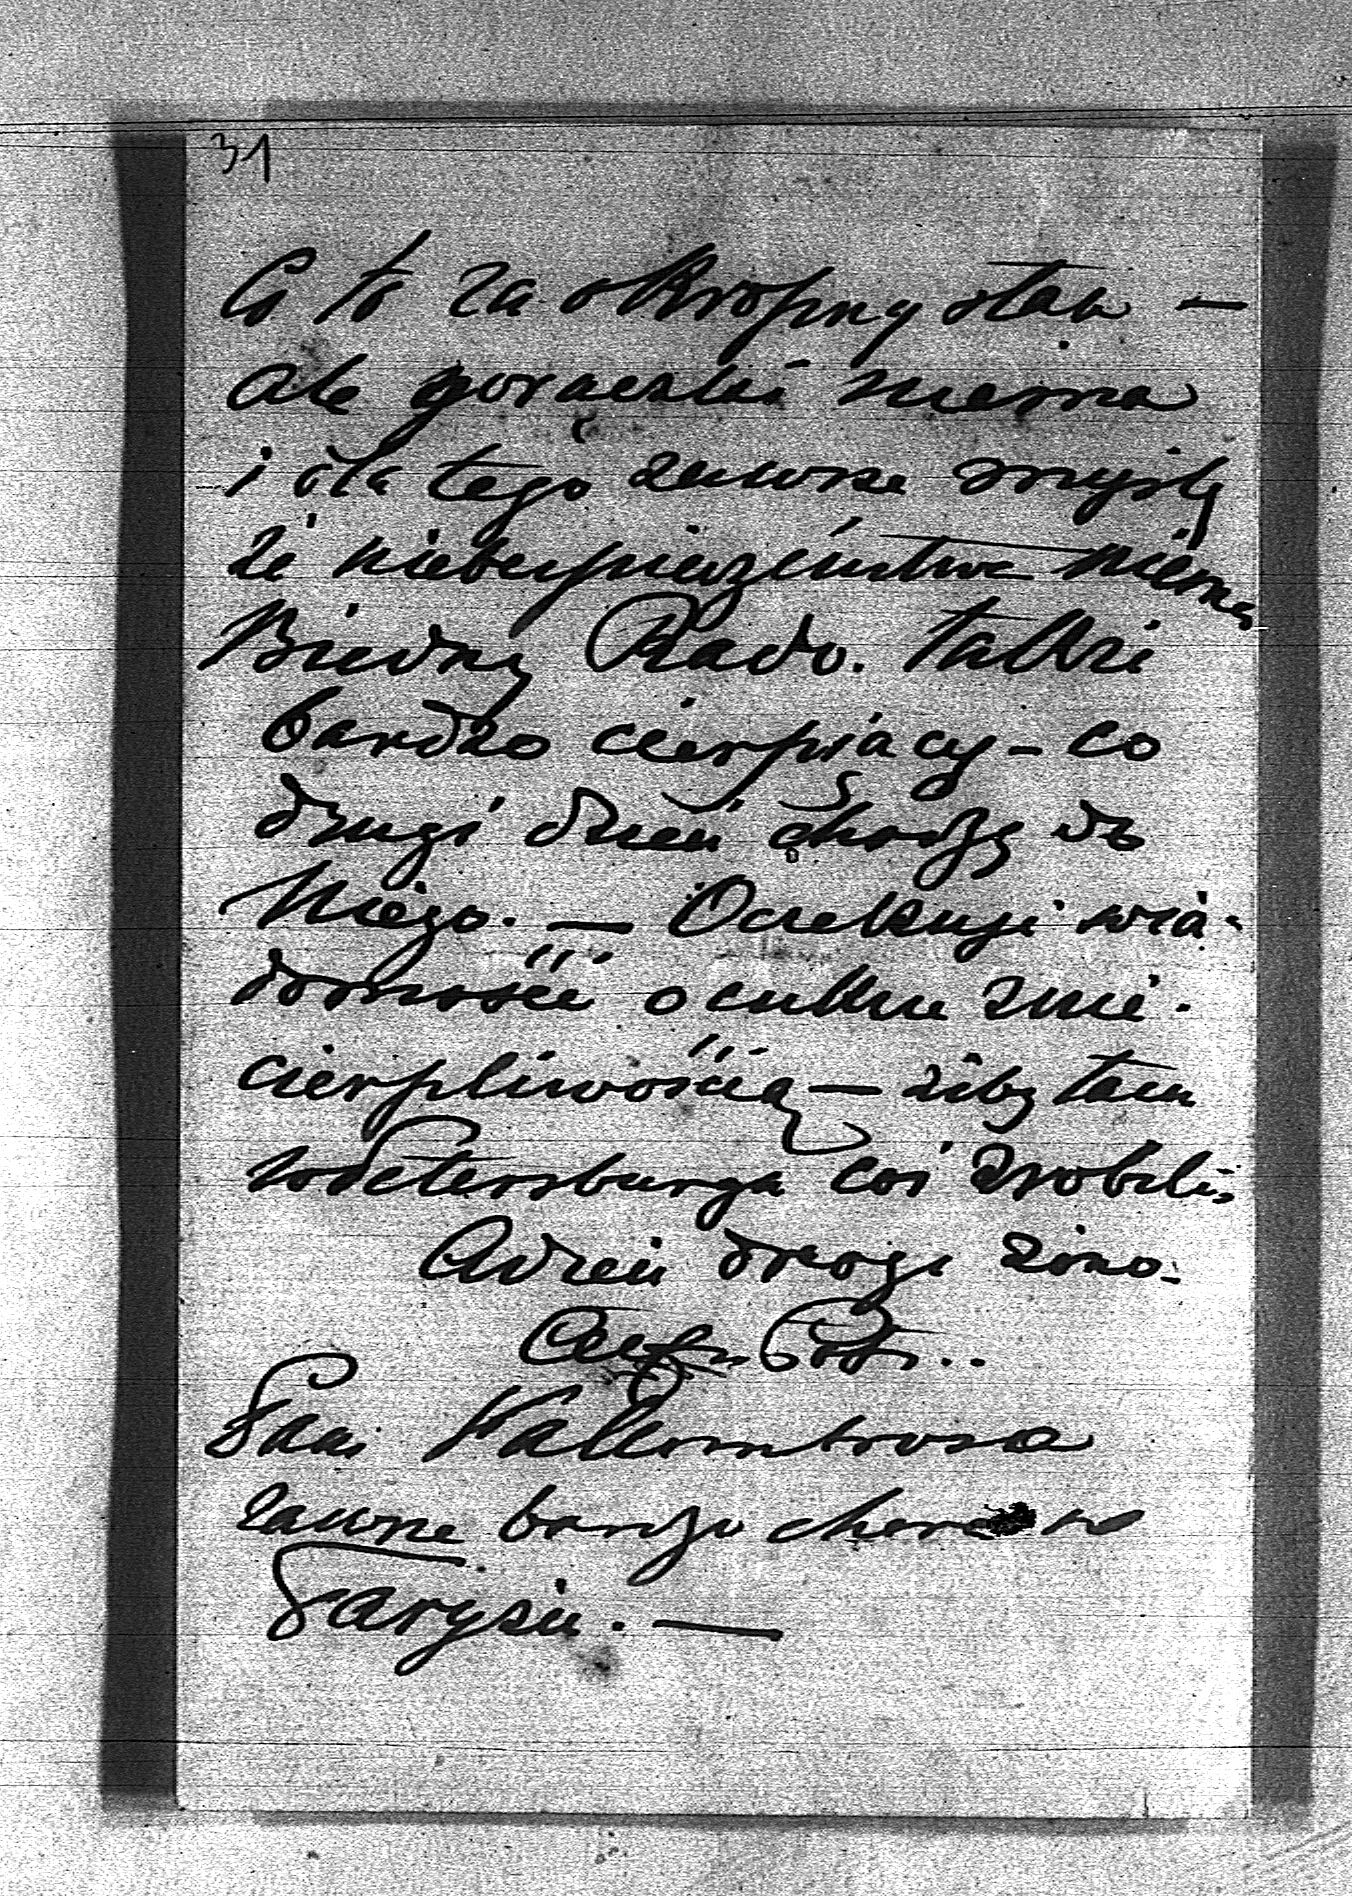 31
Co to za okropny stan —
ale gorączki niema
i dla tego zawsze myślę
że niebezpieczeństwa niema
Biedny Rado. także
bardzo cierpiący – co
drugi dzień chodzę do
Niego. — Oczekuję wia-
domości o ciebie z nie-
cierpliwością — żeby tam
w Petersburgu coś zrobili.
Adieu droga żono.
Pani Vallombrosa
zawsze bardzo chora w
Paryżu. —